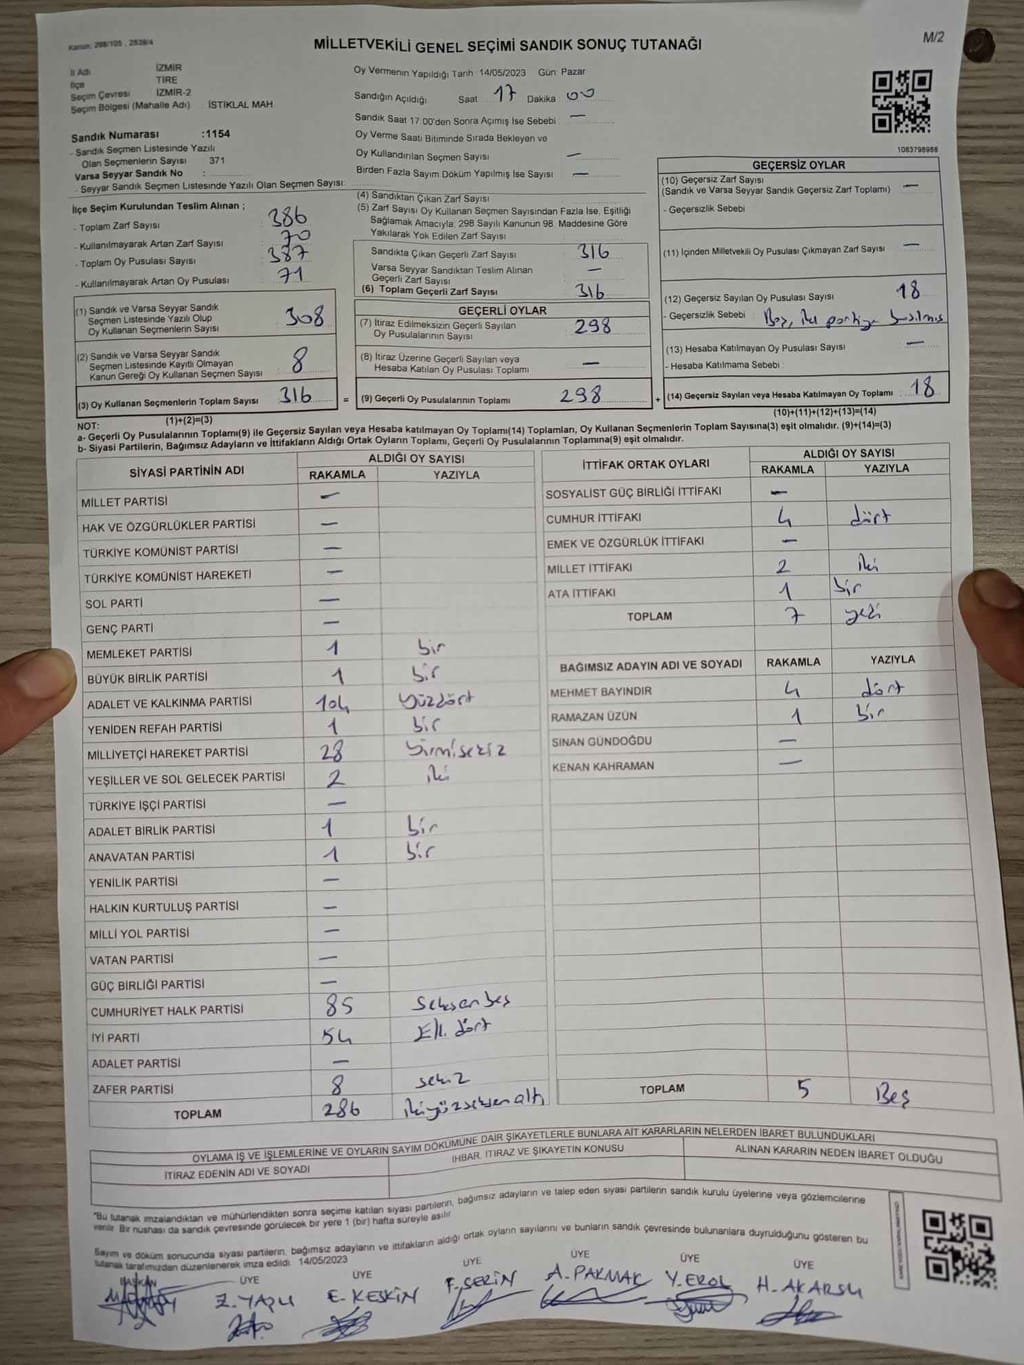 Kanun: 298/105 , 2839/4
MİLLETVEKİLİ GENEL SEÇİMİ SANDIK SONUÇ TUTANAĞI
M/2
İl Adı İZMİR
İlçe TİRE
Seçim Çevresi İZMİR-2
Seçim Bölgesi (Mahalle Adı) : İSTİKLAL MAH.
Sandık Numarası :1154
- Sandık Seçmen Listesinde Yazılı
Olan Seçmenlerin Sayısı 371
Varsa Seyyar Sandık No :
- Seyyar Sandık Seçmen Listesinde Yazılı Olan Seçmen Sayısı:
Oy Vermenin Yapıldığı Tarih 14/05/2023 Gün: Pazar
Sandığın Açıldığı Saat 17 Dakika 00
Sandık Saat 17.00'den Sonra Açımış İse Sebebi —
Oy Verme Saati Bitiminde Sırada Bekleyen ve
Oy Kullandırılan Seçmen Sayısı —
Birden Fazla Sayım Döküm Yapılmış İse Sayısı —
1083798988
İlçe Seçim Kurulundan Teslim Alınan ;
- Toplam Zarf Sayısı 386
- Kullanılmayarak Artan Zarf Sayısı 70
- Toplam Oy Pusulası Sayısı 387
- Kullanılmayarak Artan Oy Pusulası 71
(1) Sandık ve Varsa Seyyar Sandık
Seçmen Listesinde Yazılı Olup
Oy Kullanan Seçmenlerin Sayısı 308
(2) Sandık ve Varsa Seyyar Sandık
Seçmen Listesinde Kayıtlı Olmayan
Kanun Gereği Oy Kullanan Seçmen Sayısı 8
(3) Oy Kullanan Seçmenlerin Toplam Sayısı 316 =
(1)+(2)=(3)
(4) Sandıktan Çıkan Zarf Sayısı
(5) Zarf Sayısı Oy Kullanan Seçmen Sayısından Fazla İse, Eşitliği
Sağlamak Amacıyla, 298 Sayılı Kanunun 98. Maddesine Göre
Yakılarak Yok Edilen Zarf Sayısı
Sandıkta Çıkan Geçerli Zarf Sayısı 316
Varsa Seyyar Sandıktan Teslim Alınan
Geçerli Zarf Sayısı —
(6) Toplam Geçerli Zarf Sayısı 316
GEÇERLİ OYLAR
(7) İtiraz Edilmeksizin Geçerli Sayılan
Oy Pusulalarının Sayısı 298
(8) İtiraz Üzerine Geçerli Sayılan veya
Hesaba Katılan Oy Pusulası Toplamı —
(9) Geçerli Oy Pusulalarının Toplamı 298 +
GEÇERSİZ OYLAR
(10) Geçersiz Zarf Sayısı —
(Sandık ve Varsa Seyyar Sandık Geçersiz Zarf Toplamı)
- Geçersizlik Sebebi
(11) İçinden Milletvekili Oy Pusulası Çıkmayan Zarf Sayısı —
(12) Geçersiz Sayılan Oy Pusulası Sayısı 18
- Geçersizlik Sebebi : Boş, iki partiye basılmış
(13) Hesaba Katılmayan Oy Pusulası Sayısı —
- Hesaba Katılmama Sebebi :
(14) Geçersiz Sayılan veya Hesaba Katılmayan Oy Toplamı 18
(10)+(11)+(12)+(13)=(14)
NOT:
a- Geçerli Oy Pusulalarının Toplamı(9) ile Geçersiz Sayılan veya Hesaba katılmayan Oy Toplamı(14) Toplamları, Oy Kullanan Seçmenlerin Toplam Sayısına(3) eşit olmalıdır. (9)+(14)=(3)
b- Siyasi Partilerin, Bağımsız Adayların ve İttifakların Aldığı Ortak Oyların Toplamı, Geçerli Oy Pusulalarının Toplamına(9) eşit olmalıdır.
SİYASİ PARTİNİN ADI ALDIĞI OY SAYISI
RAKAMLA YAZIYLA
MİLLET PARTİSİ —
HAK VE ÖZGÜRLÜKLER PARTİSİ —
TÜRKİYE KOMÜNİST PARTİSİ —
TÜRKİYE KOMÜNİST HAREKETİ —
SOL PARTİ —
GENÇ PARTİ —
MEMLEKET PARTİSİ 1 bir
BÜYÜK BİRLİK PARTİSİ 1 bir
ADALET VE KALKINMA PARTİSİ 104 yüzdört
YENİDEN REFAH PARTİSİ 1 bir
MİLLİYETÇİ HAREKET PARTİSİ 28 yirmisekiz
YEŞİLLER VE SOL GELECEK PARTİSİ 2 iki
TÜRKİYE İŞÇİ PARTİSİ —
ADALET BİRLİK PARTİSİ 1 bir
ANAVATAN PARTİSİ 1 bir
YENİLİK PARTİSİ —
HALKIN KURTULUŞ PARTİSİ —
MİLLİ YOL PARTİSİ —
VATAN PARTİSİ —
GÜÇ BİRLİĞİ PARTİSİ —
CUMHURİYET HALK PARTİSİ 85 seksenbeş
İYİ PARTİ 54 Elli dört
ADALET PARTİSİ —
ZAFER PARTİSİ 8 sekiz
TOPLAM 286 ikiyüzseksenaltı
İTTİFAK ORTAK OYLARI ALDIĞI OY SAYISI
RAKAMLA YAZIYLA
SOSYALİST GÜÇ BİRLİĞİ İTTİFAKI —
CUMHUR İTTİFAKI 4 dört
EMEK VE ÖZGÜRLÜK İTTİFAKI —
MİLLET İTTİFAKI 2 iki
ATA İTTİFAKI 1 bir
TOPLAM 7 yedi
BAĞIMSIZ ADAYIN ADI VE SOYADI RAKAMLA YAZIYLA
MEHMET BAYINDIR 4 dört
RAMAZAN ÜZÜN 1 bir
SİNAN GÜNDOĞDU —
KENAN KAHRAMAN —
TOPLAM 5 Beş
OYLAMA İŞ VE İŞLEMLERİNE VE OYLARIN SAYIM DÖKÜMÜNE DAİR ŞİKAYETLERLE BUNLARA AİT KARARLARIN NELERDEN İBARET BULUNDUKLARI
İTİRAZ EDENİN ADI VE SOYADI İHBAR, İTİRAZ VE ŞİKAYETİN KONUSU ALINAN KARARIN NEDEN İBARET OLDUĞU
"Bu tutanak imzalandıktan ve mühürlendikten sonra seçime katılan siyasi partilerin, bağımsız adayların ve talep eden siyasi partilerin sandık kurulu üyelerine veya gözlemcilerine
verilir. Bir nushası da sandık çevresinde görülecek bir yere 1 (bir) hafta süreyle asılır
Sayım ve döküm sonucunda siyasi partilerin, bağımsız adayların ve ittifakların aldığı ortak oyların sayılarını ve bunların sandık çevresinde bulunanlara duyrulduğunu gösteren bu
tutanak tarafımızdan düzenlenerek imza edildi. 14/05/2023
BAŞKAN ÜYE ÜYE ÜYE ÜYE ÜYE ÜYE
Z. YAPLI E. KESKİN F. SERİN A. PARMAK Y. EROL H. AKARSU